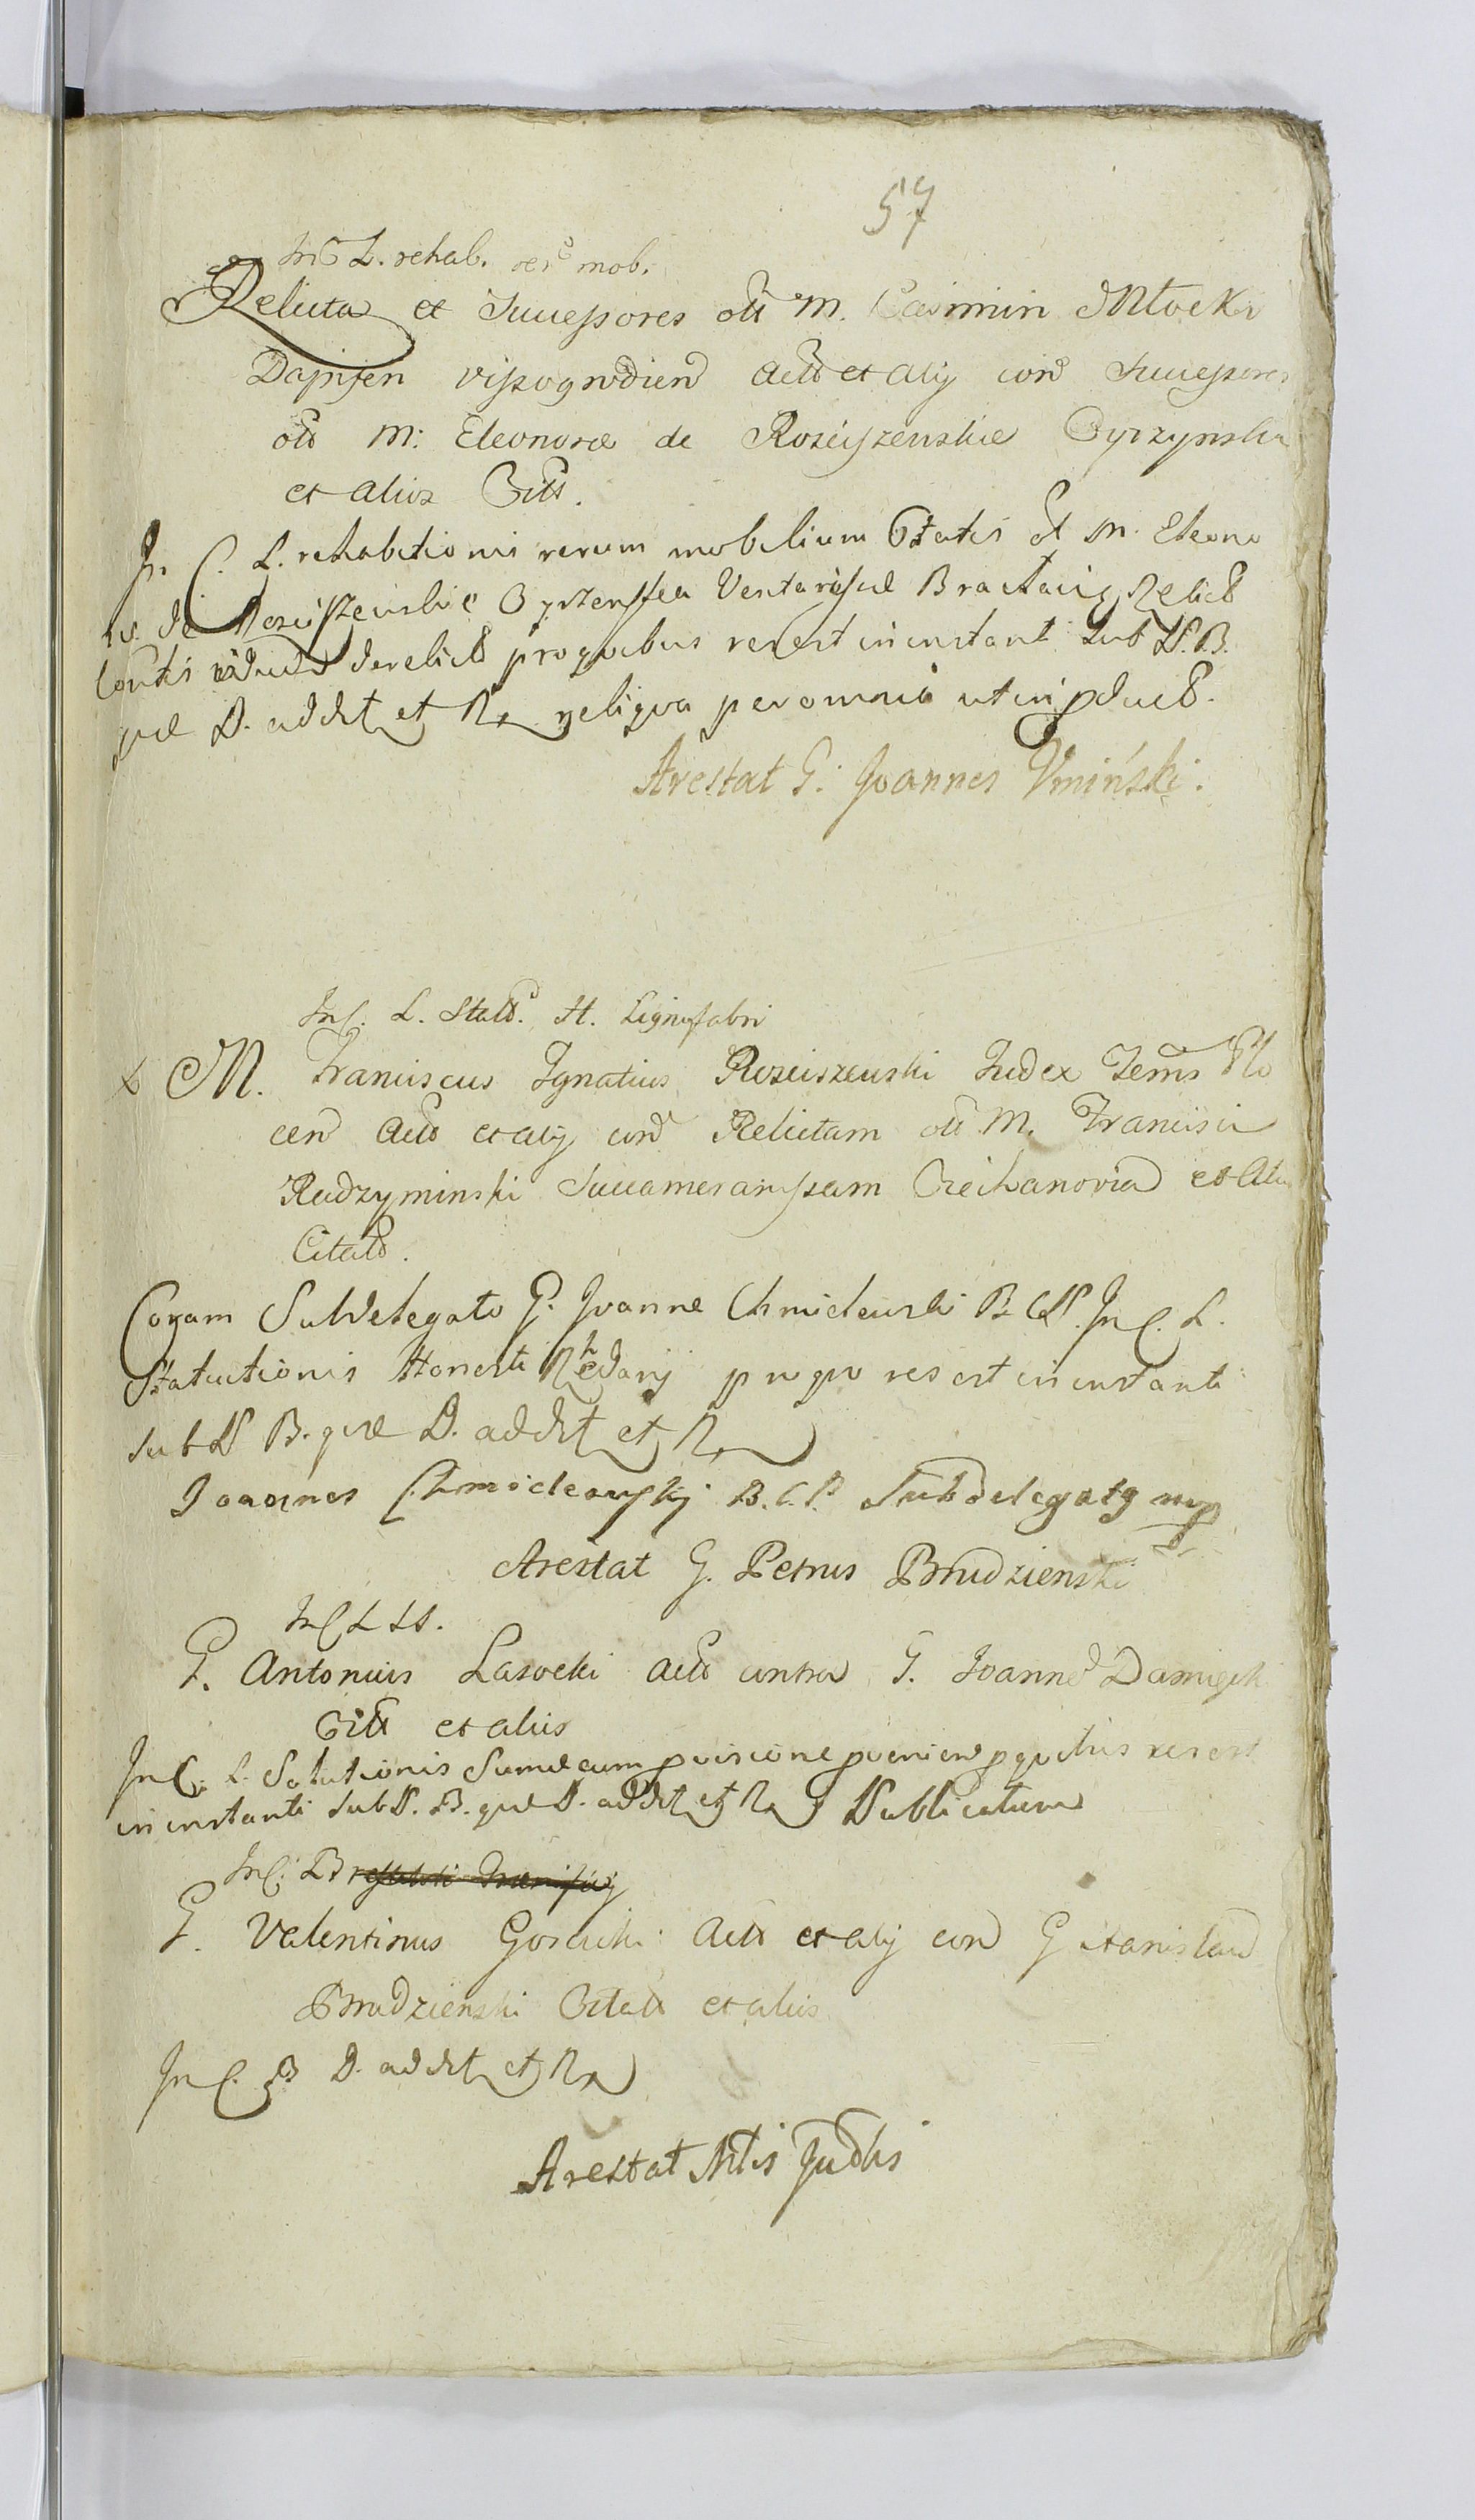 57
In C L. rehab. rer mob.
Relicta et Successores olt M. Casimiri Mlocki
Dapiferi Viszogrodien Act et alij con Successores
olt M: Eleonoræ de Rosciszewskie Cyrzynski
et alios Citt.
In C. L. rehabitionis rerum mobilium Citatis M. Eleono
de Rosciszewskie relict
derelict pro quibus res est in instanti sub N. B.
quæ D. addit et R reliqua per omnia ut in pduct.
Arestat G. Joannes Vmiński.
In C. L. Statt. H. Lignifabri
M. Franciscus Ignatius Rosciszewski Judex Terrs Plo
cen Act et alij con Relictam olt M. Francisci
Radzyminski Succamerariham Ciechanovien et Alios
Citatt.
Coram Subdelegato G. Joanne Chmielewski B. C. P. In C. L.
Statutionis Honesti Rhedarij pro quo res est in instanti
sub N B. quæ D. addit et R
Joannes Chmielewskij B. C. P. Subdelegatg mp
Arestat G. Petrus Brudzienski
In C L SS.
G. Antonius Lasocki Act contra G. Joannem Damięcki
Citt et alios
In C. L. Solutionis Summæ cum provisione provenien p quibus res est
in instanti sub N. B. quæ D. addit et R Publicatum
In C. B
G. Valentinus Goscicki Act et alij con G Stanislaum
Brudzienski Citatt et alios
In C. B D. addit et R
Arestat Ntis Judtis